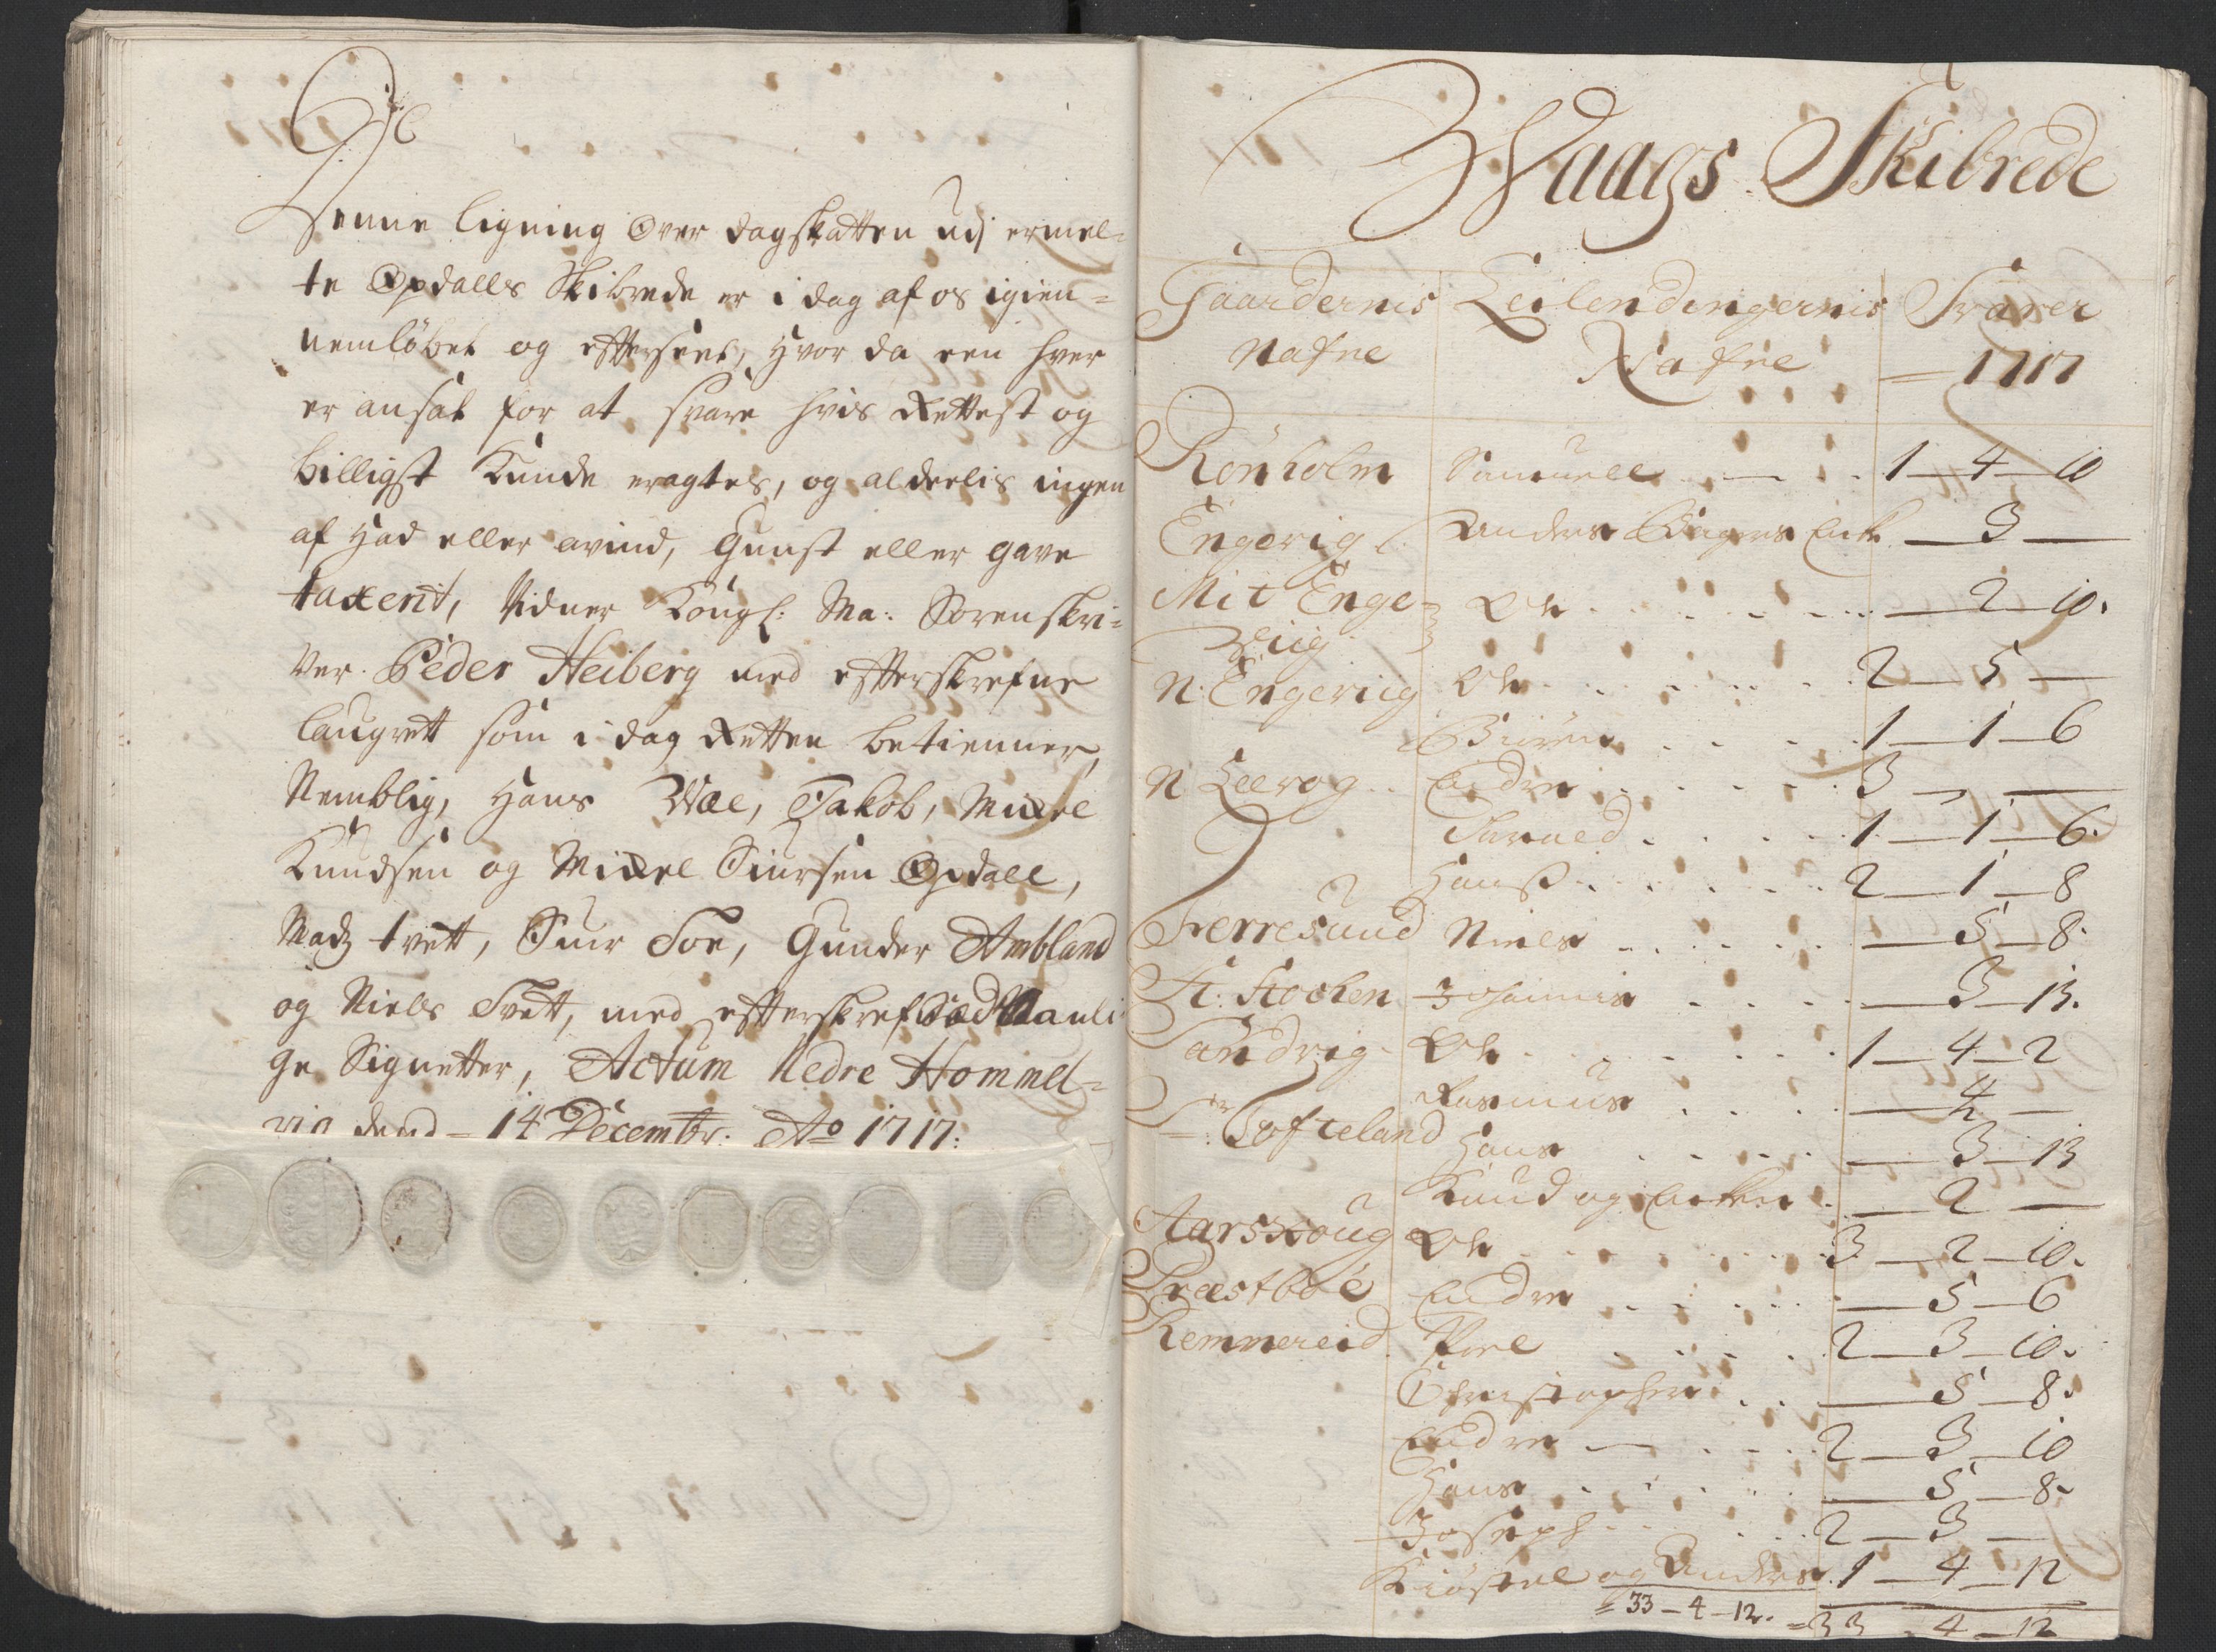 Denne ligning over dagskatten udj ermel-
te Opdalls Skibrede er i dag af os igien-
nemløbet og efftersent, hvor da een hver
er ansat for at svare hvis Rettest og
billigst Kunde eragtes, og alderlis ingen
af had eller avind, Gunst eller gave
taxerit, Vidner Kongl: Ma: Sorenskri-
ver Peder Heiberg med effterskrefne
laugrett som i dag Retten betienner,
Nemblig, Hans Wae, Jakob, Mickel
Knudsen og Mickel Siursen Opdall,
Madz tvett, Siur Toe, Gunder Ambland
og Niels Tvett, med effterskref
ge Signetter, Actum Nedre Hommel-
vig dend 14 Decembr: Ao 1717:
Waags Skibrede
Gaardernis Leilendingernis Svarer
Nafne Nafne 1717
Rönholm Samuell 1 — 4 — 10
Engerig Anders Enke — 3 —
Mit Enge- Ole — 2 — 10.
Riig
N: Engeriig Ole 2 — 5 —
1 — 1 — 6
N Leerog Endre 3 — —
1 — 1 — 6.
Hanss 2 — 1 — 8
Ferresund Niels — 5 — 8.
St: Stochen Johannis — 3 — 13.
Sandvig Ole 1 — 4 — 2
Rasmus — 4 —
Tofteland Hans — 3 — 13
Knud og Enken — 2 —
Aarskoug Ole 3 — 2 — 10.
Præstböe Endre — 5 — 6
Remmereid Poel 2 — 3 — 10.
Christopher — 5 — 8.
Endre 2 — 3 — 10
Hans — 5 — 8.
Joseph 2 — 3 —
Kiöstel og Anders 1 — 4 — 12
= 33 — 4 — 12. = 33 — 4 — 12